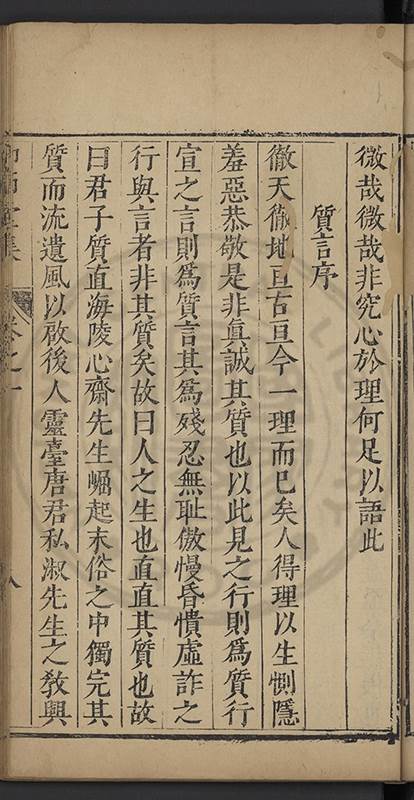 微哉微哉非究心於理何足以語此
質言序
徹天徹地亘古亘今一理而已矣人得理以生惻隱
羞惡恭敬是非眞誠其質也以此見之行則爲質行
宣之言則爲質言其爲殘忍無耻傲慢昏憒虛詐之
行與言者非其質矣故曰人之生也直直其質也故
曰君子質直海陵心齋先生崛起末俗之中獨完其
質而流遺風以啟後人靈臺唐君私淑先生之敎興
集 卷之一 八